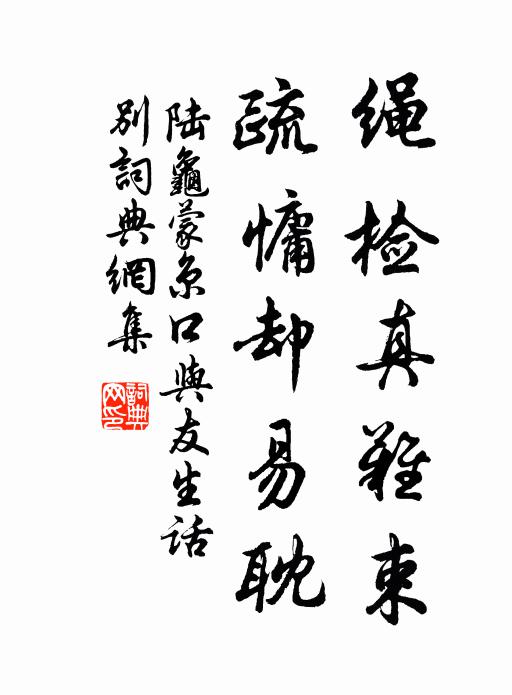 绳检真难束
疏慵却易耽
陆龜蒙京口與友生話
别詞典網集
詞典网印